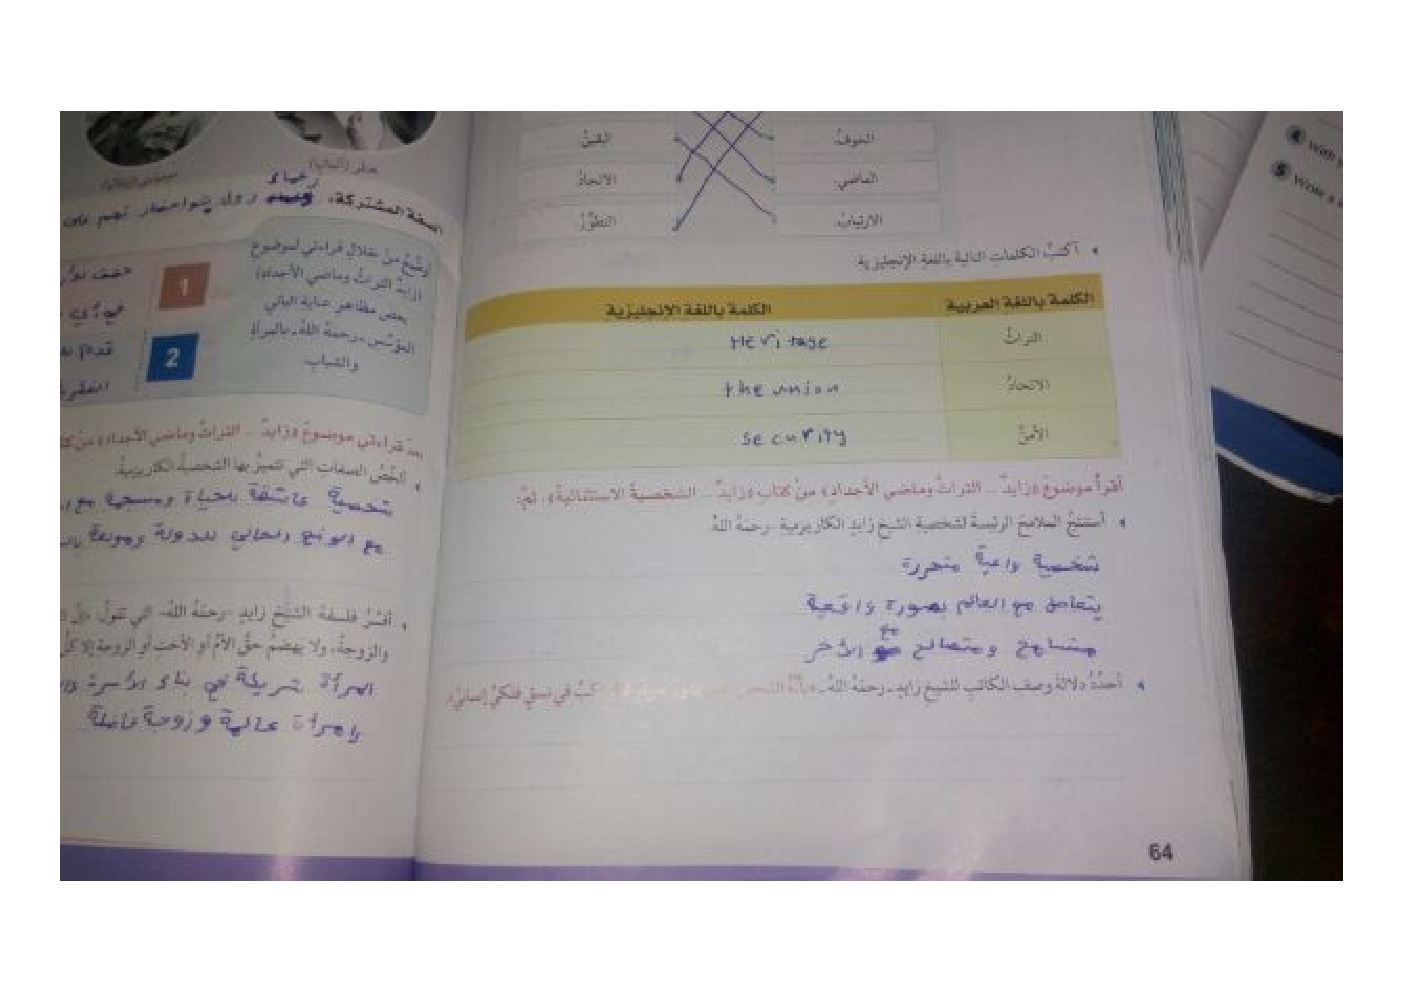 اليقينُ
الخوفُ.
الاتحادُ
الماضي.
التطوُّرُ
الارتيابُ.
أكتبُ الكلماتِ التاليةَ باللغةِ الإنجليزيةِ.
الكلمة باللغة العربية
الكلمة باللغة الإنجليزية
التراثُ
Heritage
الاتحادُ
the union
الأمنُ
security
أقرأُ موضوعَ «زايدٌ ... التراثُ وماضي الأجداد» منْ كتابِ «زايدٌ ... الشخصيةُ الاستثنائيةُ»، ثمَّ:
أستنتجُ الملامحَ الرئيسةَ لشخصيةِ الشيخِ زايدٍ الكاريزميةِ -رحمَهُ اللهُ.
شخصية واعية متحررة
يتعامل مع العالم بصورة واقعية
متسامح ومتصالح مع الآخر
أحدّدُ دلالةَ وصفِ الكاتبِ للشيخِ زايدٍ -رحمَهُ اللهُ- بأنَّهُ الشخص
في نسقٍ فكريٍّ إنسانيٍّ.
64
رخاء
السمة المشتركة:
أوضّحُ منْ خلالِ قراءتي لموضوعِ
(زايدٌ التراثُ وماضي الأجداد)
بعضَ مظاهرِ عنايةِ الباني
المؤسّسِ -رحمَهُ اللهُ- بالمرأةِ
والشبابِ.
1
في
2
قدم
بعدَ قراءتي موضوعَ «زايدٌ ... التراثُ وماضي الأجداد» منْ
ألخّصُ الصفاتِ التي تتميزُ بها الشخصيةُ الكاريزميةُ.
شخصية عاشقة للحياة ومنسجمة مع
مع الوضع الحالي للدولة
أفسّرُ فلسفةَ الشيخِ زايدٍ -رحمَهُ اللهُ- التي تقولُ:
والزوجةُ، ولا يهضمُ حقَّ الأمِّ أو الأختِ أو الزوجةِ إلا
المرأة شريكة في بناء الأسرة
امرأة عاملة وزوجة فاضلة
4 With
5 Write a